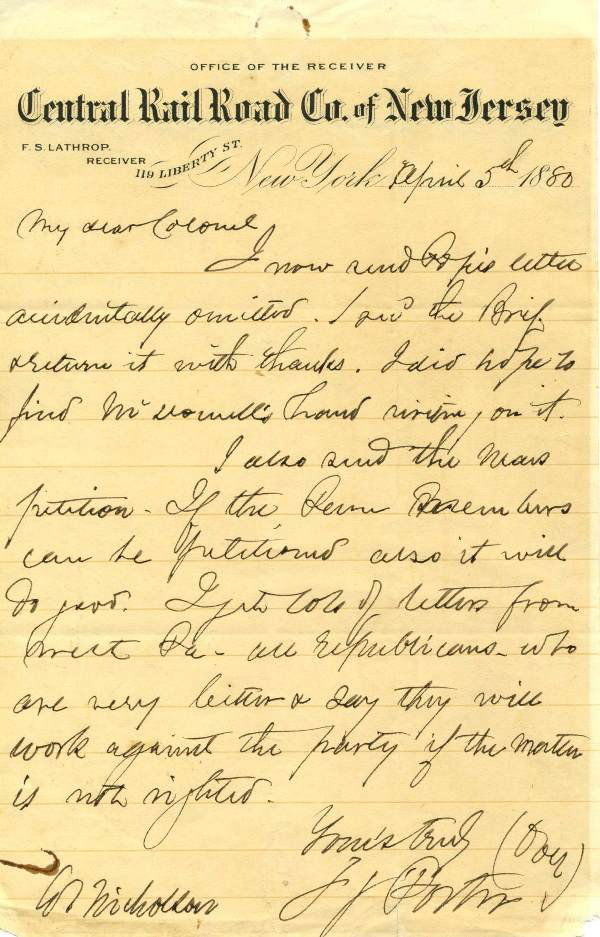 OFFICE OF THE RECEIVER
Central Rail Road Co. of New Jersey
F. S. LATHROP.
RECEIVER
119 LIBERTY ST.
New York, April 5th 1880
My dear Colonel
I now send Pope's letter
accidentally omitted. I the Brief
& return it with thanks. I did hope to
find McDowell's hand writing on it.
I also send the Mass
petition - If the Penn members
can be petitioned also it will
do good. I get lots of letters from
West Pa - all republicans - who
are very bitter & say they will
work against the party if the matter
is not righted.
Yours truly
F J Porter
Col Nicholson